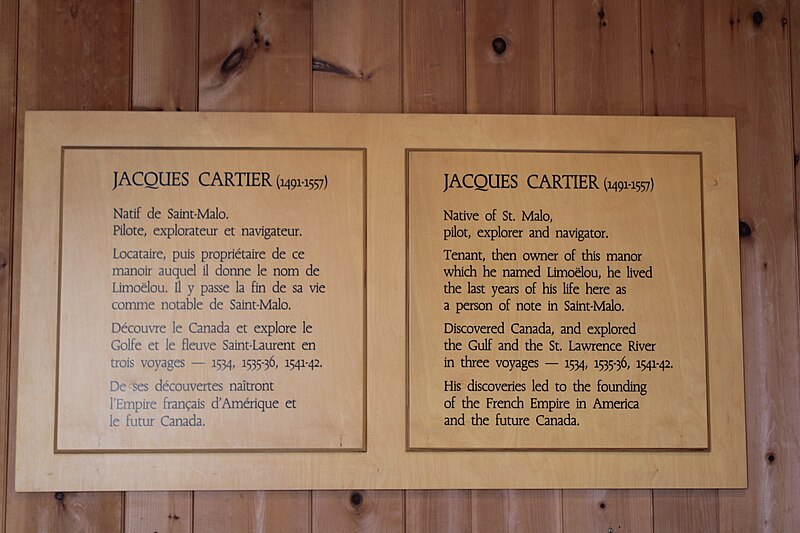 JACQUES CARTIER (1491-1557)
Natif de Saint-Malo.
Pilote, explorateur et navigateur.
Locataire, puis propriétaire de ce
manoir auquel il donne le nom de
Limoëlou. Il y passe la fin de sa vie
comme notable de Saint-Malo.
Découvre le Canada et explore le
Golfe et le fleuve Saint-Laurent en
trois voyages — 1534, 1535-36, 1541-42.
De ses découvertes naîtront
l'Empire français d'Amérique et
le futur Canada.
JACQUES CARTIER (1491-1557)
Native of St. Malo,
pilot, explorer and navigator.
Tenant, then owner of this manor
which he named Limoëlou, he lived
the last years of his life here as
a person of note in Saint-Malo.
Discovered Canada, and explored
the Gulf and the St. Lawrence River
in three voyages — 1534, 1535-36, 1541-42.
His discoveries led to the founding
of the French Empire in America
and the future Canada.